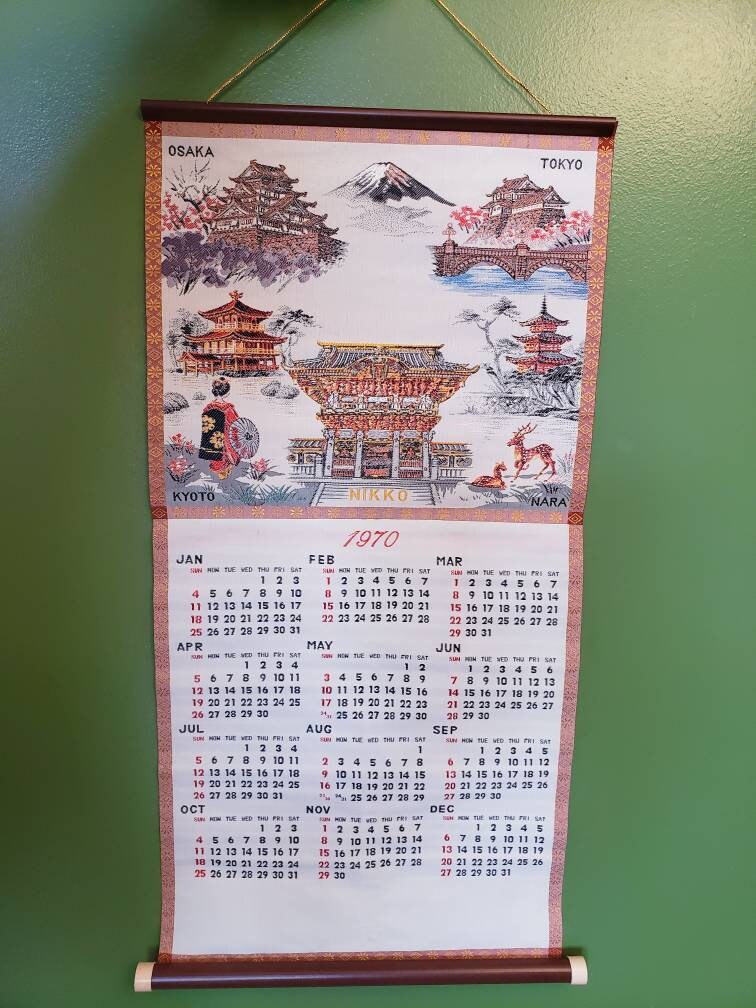 OSAKA
TOKYO
KYOTO
NIKKO
NARA
1970
JAN
SUN MON TUE WED THU FRI SAT
1 2 3
4 5 6 7 8 9 10
11 12 13 14 15 16 17
18 19 20 21 22 23 24
25 26 27 28 29 30 31
FEB
SUN MON TUE WED THU FRI SAT
1 2 3 4 5 6 7
8 9 10 11 12 13 14
15 16 17 18 19 20 21
22 23 24 25 26 27 28
MAR
SUN MON TUE WED THU FRI SAT
1 2 3 4 5 6 7
8 9 10 11 12 13 14
15 16 17 18 19 20 21
22 23 24 25 26 27 28
29 30 31
APR
SUN MON TUE WED THU FRI SAT
1 2 3 4
5 6 7 8 9 10 11
12 13 14 15 16 17 18
19 20 21 22 23 24 25
26 27 28 29 30
MAY
SUN MON TUE WED THU FRI SAT
1 2
3 4 5 6 7 8 9
10 11 12 13 14 15 16
17 18 19 20 21 22 23
24/31 25 26 27 28 29 30
JUN
SUN MON TUE WED THU FRI SAT
1 2 3 4 5 6
7 8 9 10 11 12 13
14 15 16 17 18 19 20
21 22 23 24 25 26 27
28 29 30
JUL
SUN MON TUE WED THU FRI SAT
1 2 3 4
5 6 7 8 9 10 11
12 13 14 15 16 17 18
19 20 21 22 23 24 25
26 27 28 29 30 31
AUG
SUN MON TUE WED THU FRI SAT
1
2 3 4 5 6 7 8
9 10 11 12 13 14 15
16 17 18 19 20 21 22
23/30 24/31 25 26 27 28 29
SEP
SUN MON TUE WED THU FRI SAT
1 2 3 4 5
6 7 8 9 10 11 12
13 14 15 16 17 18 19
20 21 22 23 24 25 26
27 28 29 30
OCT
SUN MON TUE WED THU FRI SAT
1 2 3
4 5 6 7 8 9 10
11 12 13 14 15 16 17
18 19 20 21 22 23 24
25 26 27 28 29 30 31
NOV
SUN MON TUE WED THU FRI SAT
1 2 3 4 5 6 7
8 9 10 11 12 13 14
15 16 17 18 19 20 21
22 23 24 25 26 27 28
29 30
DEC
SUN MON TUE WED THU FRI SAT
1 2 3 4 5
6 7 8 9 10 11 12
13 14 15 16 17 18 19
20 21 22 23 24 25 26
27 28 29 30 31